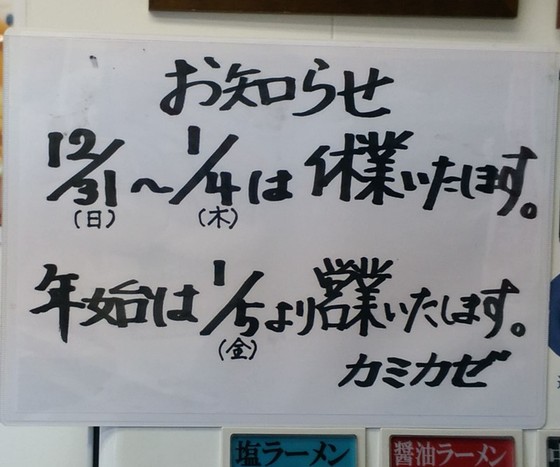 お知らせ
12/31～1/4は 休業いたします。
(日) (木)
年始は1/5より営業いたします。
(金)
カミカゼ
塩ラーメン 醤油ラーメン